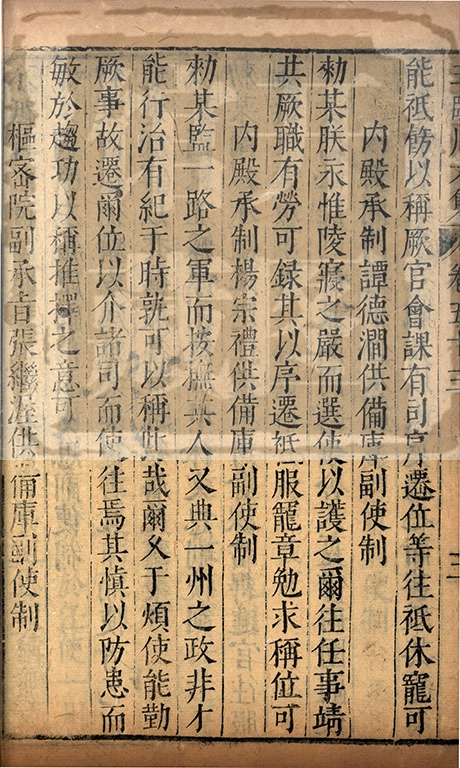 能祗飭以稱厥官會課有司序遷位等往祗休寵可
內殿承制譚德潤供備庫副使制
勑某朕永惟陵寢之嚴而選使以護之爾往任事靖
共厥職有勞可録其以序遷祗服寵章勉求稱位可
內殿承制楊宗禮供備庫副使制
勑某監一路之軍而按撫其人又典一州之政非才
能行治有紀于時孰可以稱此哉爾乂于煩使能勤
厥事故遷爾位以介諸司而使往焉其愼以防患而
敏於趨功以稱推擇之意可
樞密院副承旨張繼渥供備庫副使制